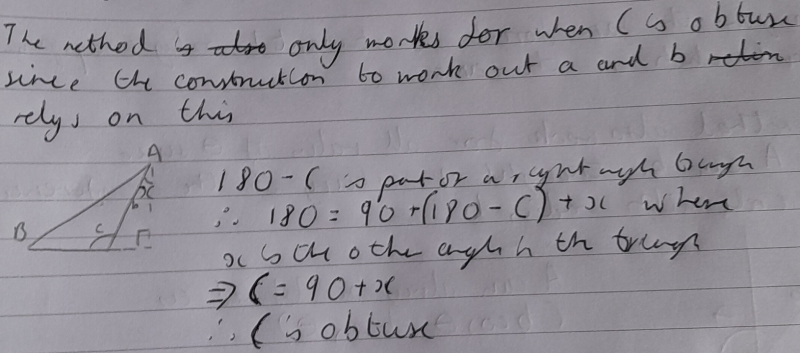 The method is also only works for when C is obtuse
since the construction to work out a and b
relys on this
A
x
B
C
180 - C is part of a right angle triangle
∴ 180 = 90 + (180 - C) + x where
x is the other angle in the triangle
⇒ C = 90 + x
∴ C is obtuse